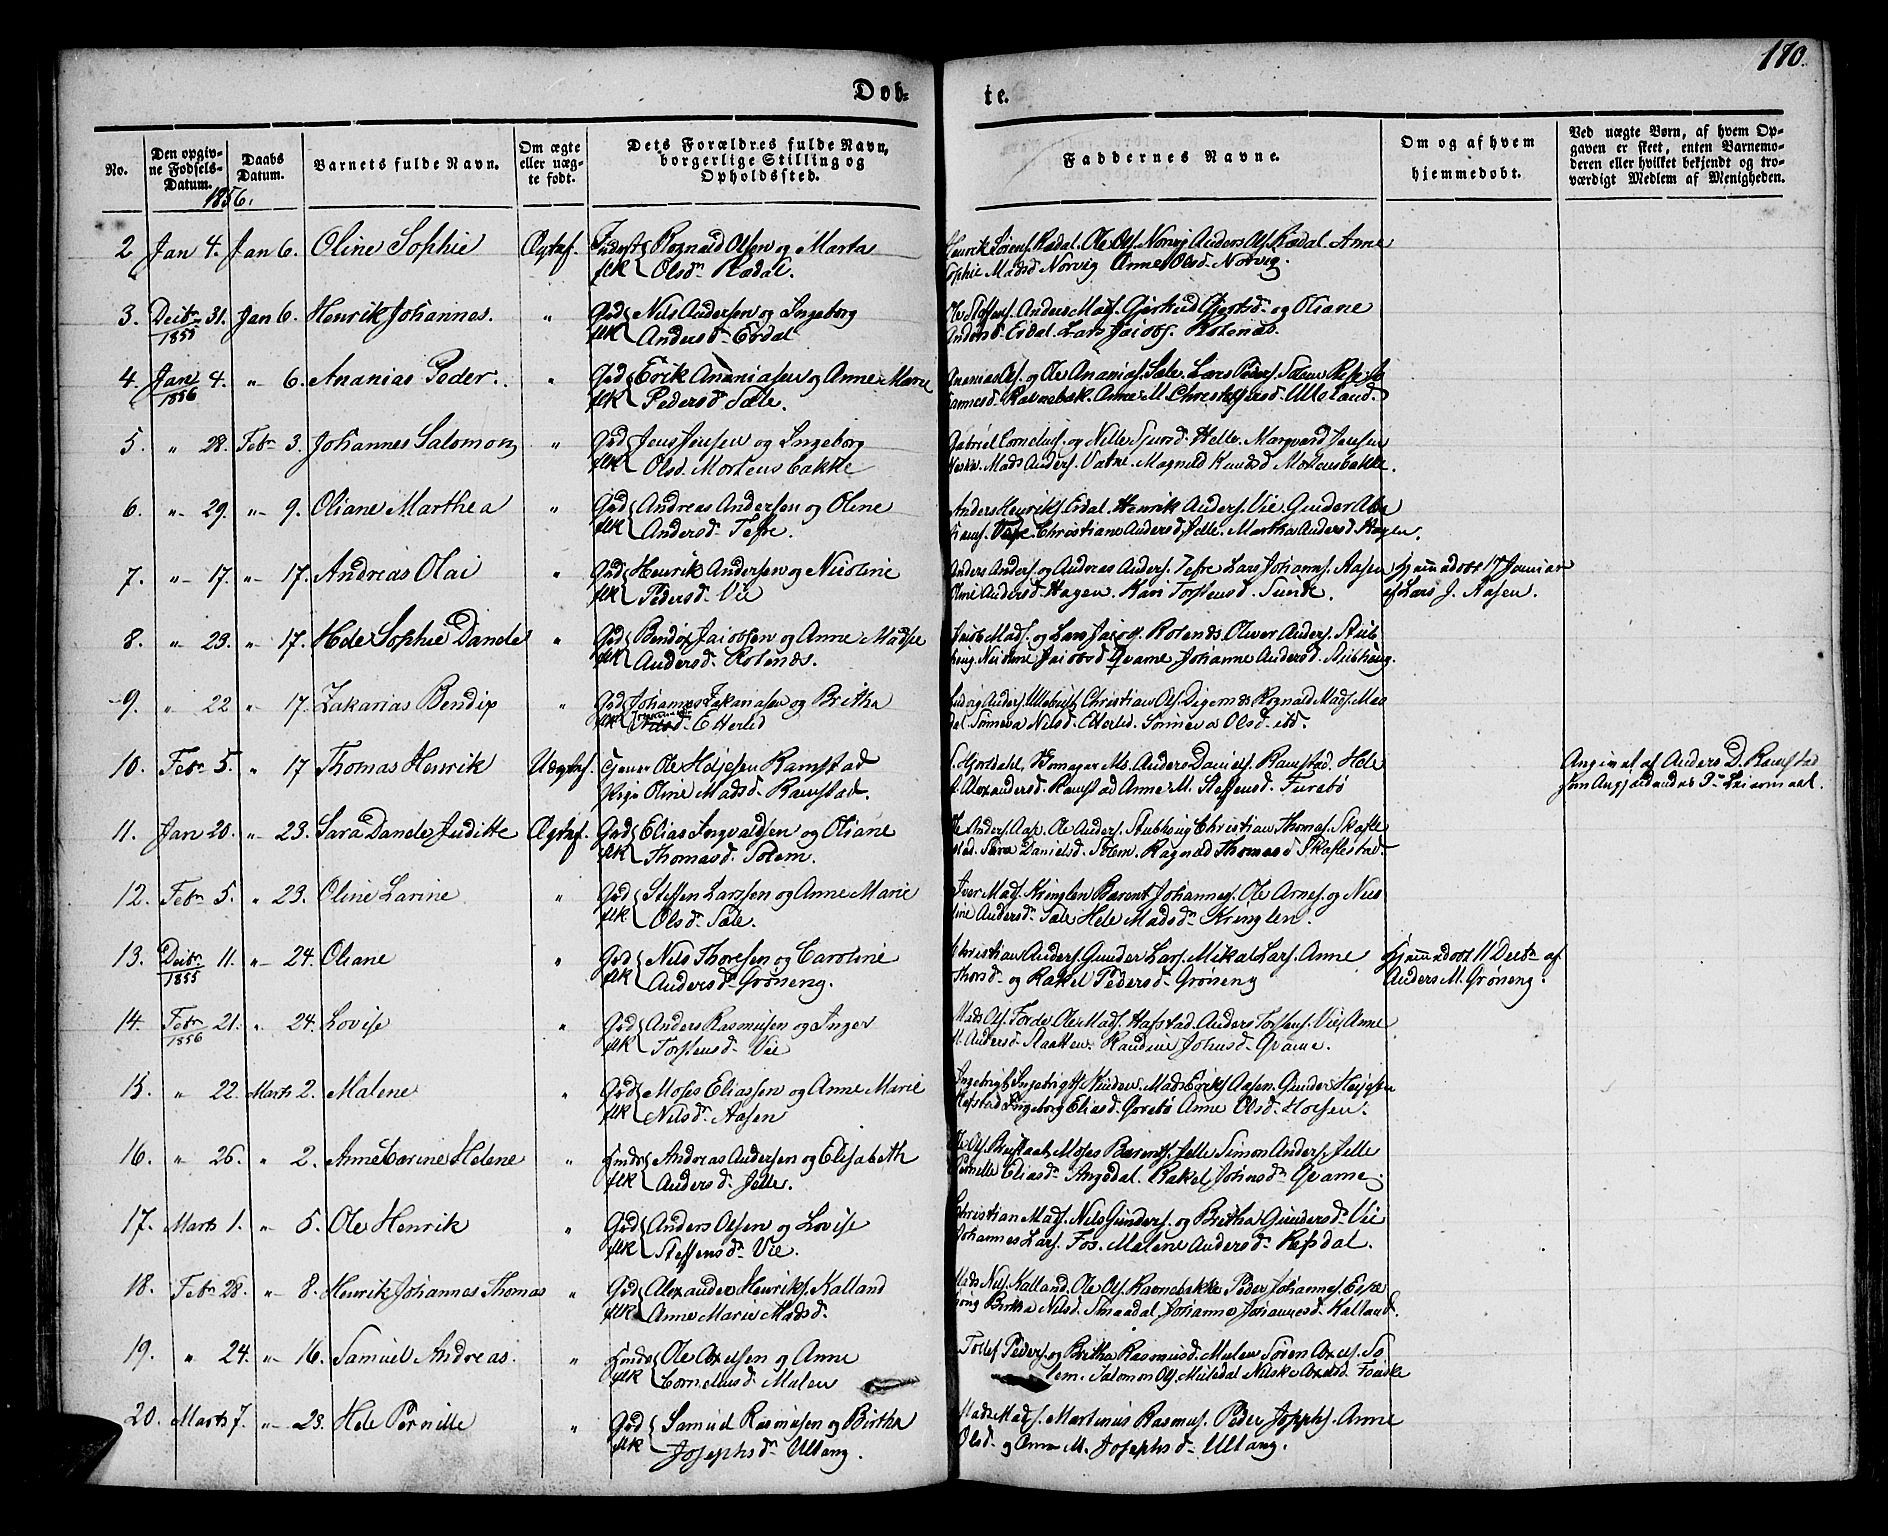 170.
Døb-
te.
No.
Den opgiv-
ne Fødsels-
Datum.
Daabs
Datum.
Barnets fulde Navn.
Om ægte
eller uæg-
te født.
Dets Forældres fulde Navn,
borgerlige Stilling og
Opholdssted.
Faddernes Navne.
Om og af hvem
hjemmedøbt.
Ved uægte Børn, af hvem Op-
gaven er skeet, enten Barnemo-
deren eller hvilket bekjendt og tro-
værdigt Medlem af Menigheden.
1856.
2 Jan 4. Jan 6. Oline Sophie Ægtef. Rognald Olsen og Marta
flk Olsd. Rødal.
Henrik Sørens. Rødal. Ole Ols. Norvig Anders Ols. Rødal. Anne
Sophie Madsd Norvig Anne Olsd. Norvig.
3. Decbr 31. Jan 6. Henrik Johannes. " Grd Nils Andersen og Ingeborg
1855 flk Andersd. Erdal
Ole Steffens. Anders Mads. og Oliane
Andersd. Erdal. Lars Jacobs. Rotenæs.
4. Jan 4. " 6. Ananias Peder. " Grd Erik Ananiasen og Anne Marie
1856 flk Pedersd. Sæle.
Ananias Ols. og Ole Ananias. Sæle. Lars Peders. Solem
Ravnebak. Anne M. Christophersd. Ulleland.
5. " 28. Febr 3. Johannes Salomon " Grd Jens Jensen og Ingeborg
flk Olsd. Mortensbakke
Gabriel Cornelius. og Nille Sjursd. Helle. Marqvard Jensen
Mads Anders. Vatne. Magnild Knudsd Mortensbakke.
6. " 29. " 9. Oliane Marthea " Grd Andreas Andersen og Oline
flk Andersd. Tefre.
Anders Henriks. Erdal. Henrik Anders. Vie Gunder
Christiane Andersd. Jelle. Martha Andersd. Hagen.
7. " 17. " 17. Andreas Olai " Grd Henrik Andersen og Nicoline
flk Pedersd. Vie
Anders Anders. og Andreas Anders. Tefre Lars Johanns. Aasen
Oline Andersd. Hagen. Kari Torstensd. Sunde.
Hjemmedøbt 17 Januar
af Lars J. Aasen.
8. " 23. " 17. Hele Sophie Danele " Grd Bendix Jacobsen og Anne Madtje
flk Andersd. Rotenæs.
Mads. og Lars Jacobs. Rotenæs. Oliver Anders. Stub-
haug. Nicoline Jacobsd Qvame Johanne Andersd. Stubhaug.
9. " 22 " 17. Zakarias Bendix " Grd Johannes Zakariasen og Britha
flk Etterlid
Ludvig Anders. Ullebust Christian Ols. Digernæs Rognald Mads.
Sønneva Nilsd. Etterlid. Sønneva Olsd. ibd.
10. Febr 5. " 17 Thomas Henrik Uægtef. Tjener Ole Helgesen Ramstad
Pige Oline Madsd. Ramstad.
Anders Daniels. Ramstad. Hele
Alexandersd. Ramstad Anne M. Steffensd. Furebø
Angivet af Anders D. Ramstad
som Angjældendes 3de Leiermaal.
11. Jan 20. " 23. Sara Danele Juditte Ægtef. Grd Elias Ingvaldsen og Oliane
flk Thomasd. Solem.
Ole Anders. Aap. Ole Anders. Stubhaug Christian Thomas. Skafle-
stad. Sara Danielsd. Solem. Ragnild Thomasd Skaflestad.
12. Febr 5. " 23. Oline Larine " Grd Steffen Larssen og Anne Marie
flk Olsd. Sæle.
Iver Mads. Kringlen Bærent Johannes. Ole Arnes. og Nico-
line Andersd. Sæle Hele Madsd. Kringlen.
13. Decbr. 11. " 24. Oliane " Grd Nils Thoresen og Caroline
1855 flk Andersd. Grøneng.
Christian Anders. Gunder Lars. Mikal Lars. Anne
Thorsd. og Rakel Pedersd. Grøneng
Hjemmedøbt 11 Decbr af
Anders M. Grøneng.
14. Febr 21. " 24. Lovise " Grd Anders Rasmussen og Inger
1856 flk Torstensd. Vie
Mads Ols. Førde Ole Mads. Hafstad. Anders Torstens. Vie Anne
M. Andersd. Slaatten. Randine Johnsd. Qvame.
15. " 22. Marts 2. Malene " Grd Moses Eliassen og Anne Marie
flk Nilsd. Aasen
Ingebrigt Ingebrigts. Mads Eriks. Aasen. Gunder Helges.
Hafstad Ingeborg Eliasd. Gorebø Anne Olsd. Holsen.
16. " 26. " 2. Anne Carine Helene " Andreas Andersen og Elisabeth
flk Andersd. Jelle.
Ole Ols. Brustaal Moses Bærents. Jelle Simon Anders. Jelle
Pernelle Eliasd. Angedal. Rakel Johnsd. Qvame.
17. Marts 1. " 5. Ole Henrik " Grd Anders Olsen og Lovise
flk Steffensd. Vie.
Christian Mads. Nils Gunders. og Britha Gundersd. Vie
Johannes Lars. Fos. Malene Andersd. Refsdal.
18. Febr 28. " 8. Henrik Johannes Thomas " Grd Alexander Henriks. Kalland
flk Anne Marie Madsd.
Mads Nils. Kalland. Ole Ols. Ravnebakke Peder Johannes. Espe
Britha Nilsd. Johanne Johannesd. Kalland.
19. " 24. " 16. Samuel Andreas. " Ole Axelsen og Anne
flk Cornelusd. Malen
Tollef Peders. og Britha Rasmusd. Malen Søren Axels. So-
lem. Salomon Ols. Muledal
20. Marts 7. " 23. Hele Pernille " Grd Samuel Rasmussen og Birtha
flk Josephsd. Ultang.
Mads Mads. Martinus Rasmus. Peder Josephs. Anne
Olsd. og Anne M. Josephsd. Ultang.